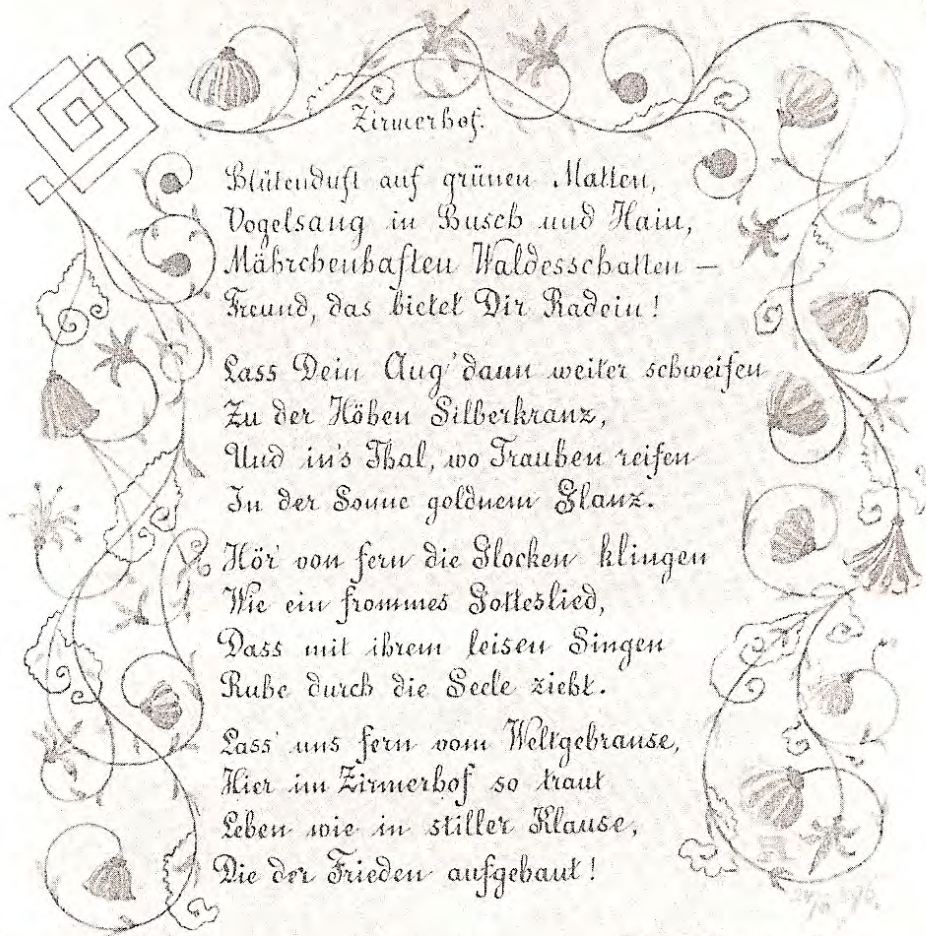 Zirmerhof.
Blütenduft auf grünen Matten,
Vogelsang in Busch und Hain,
Mährchenhaften Waldesschatten –
Freund, das bietet Dir Radein!
Lass Dein Aug' dann weiter schweifen
Zu der Höhen Silberkranz,
Und in's Thal, wo Trauben reifen
In der Sonne goldnem Glanz.
Hör' von fern die Glocken klingen
Wie ein frommes Gotteslied,
Dass mit ihrem leisen Singen
Ruhe durch die Seele zieht.
Lass' uns fern vom Weltgebrause,
Hier im Zirmerhof so traut
Leben wie in stiller Klause,
Die der Frieden aufgebaut!